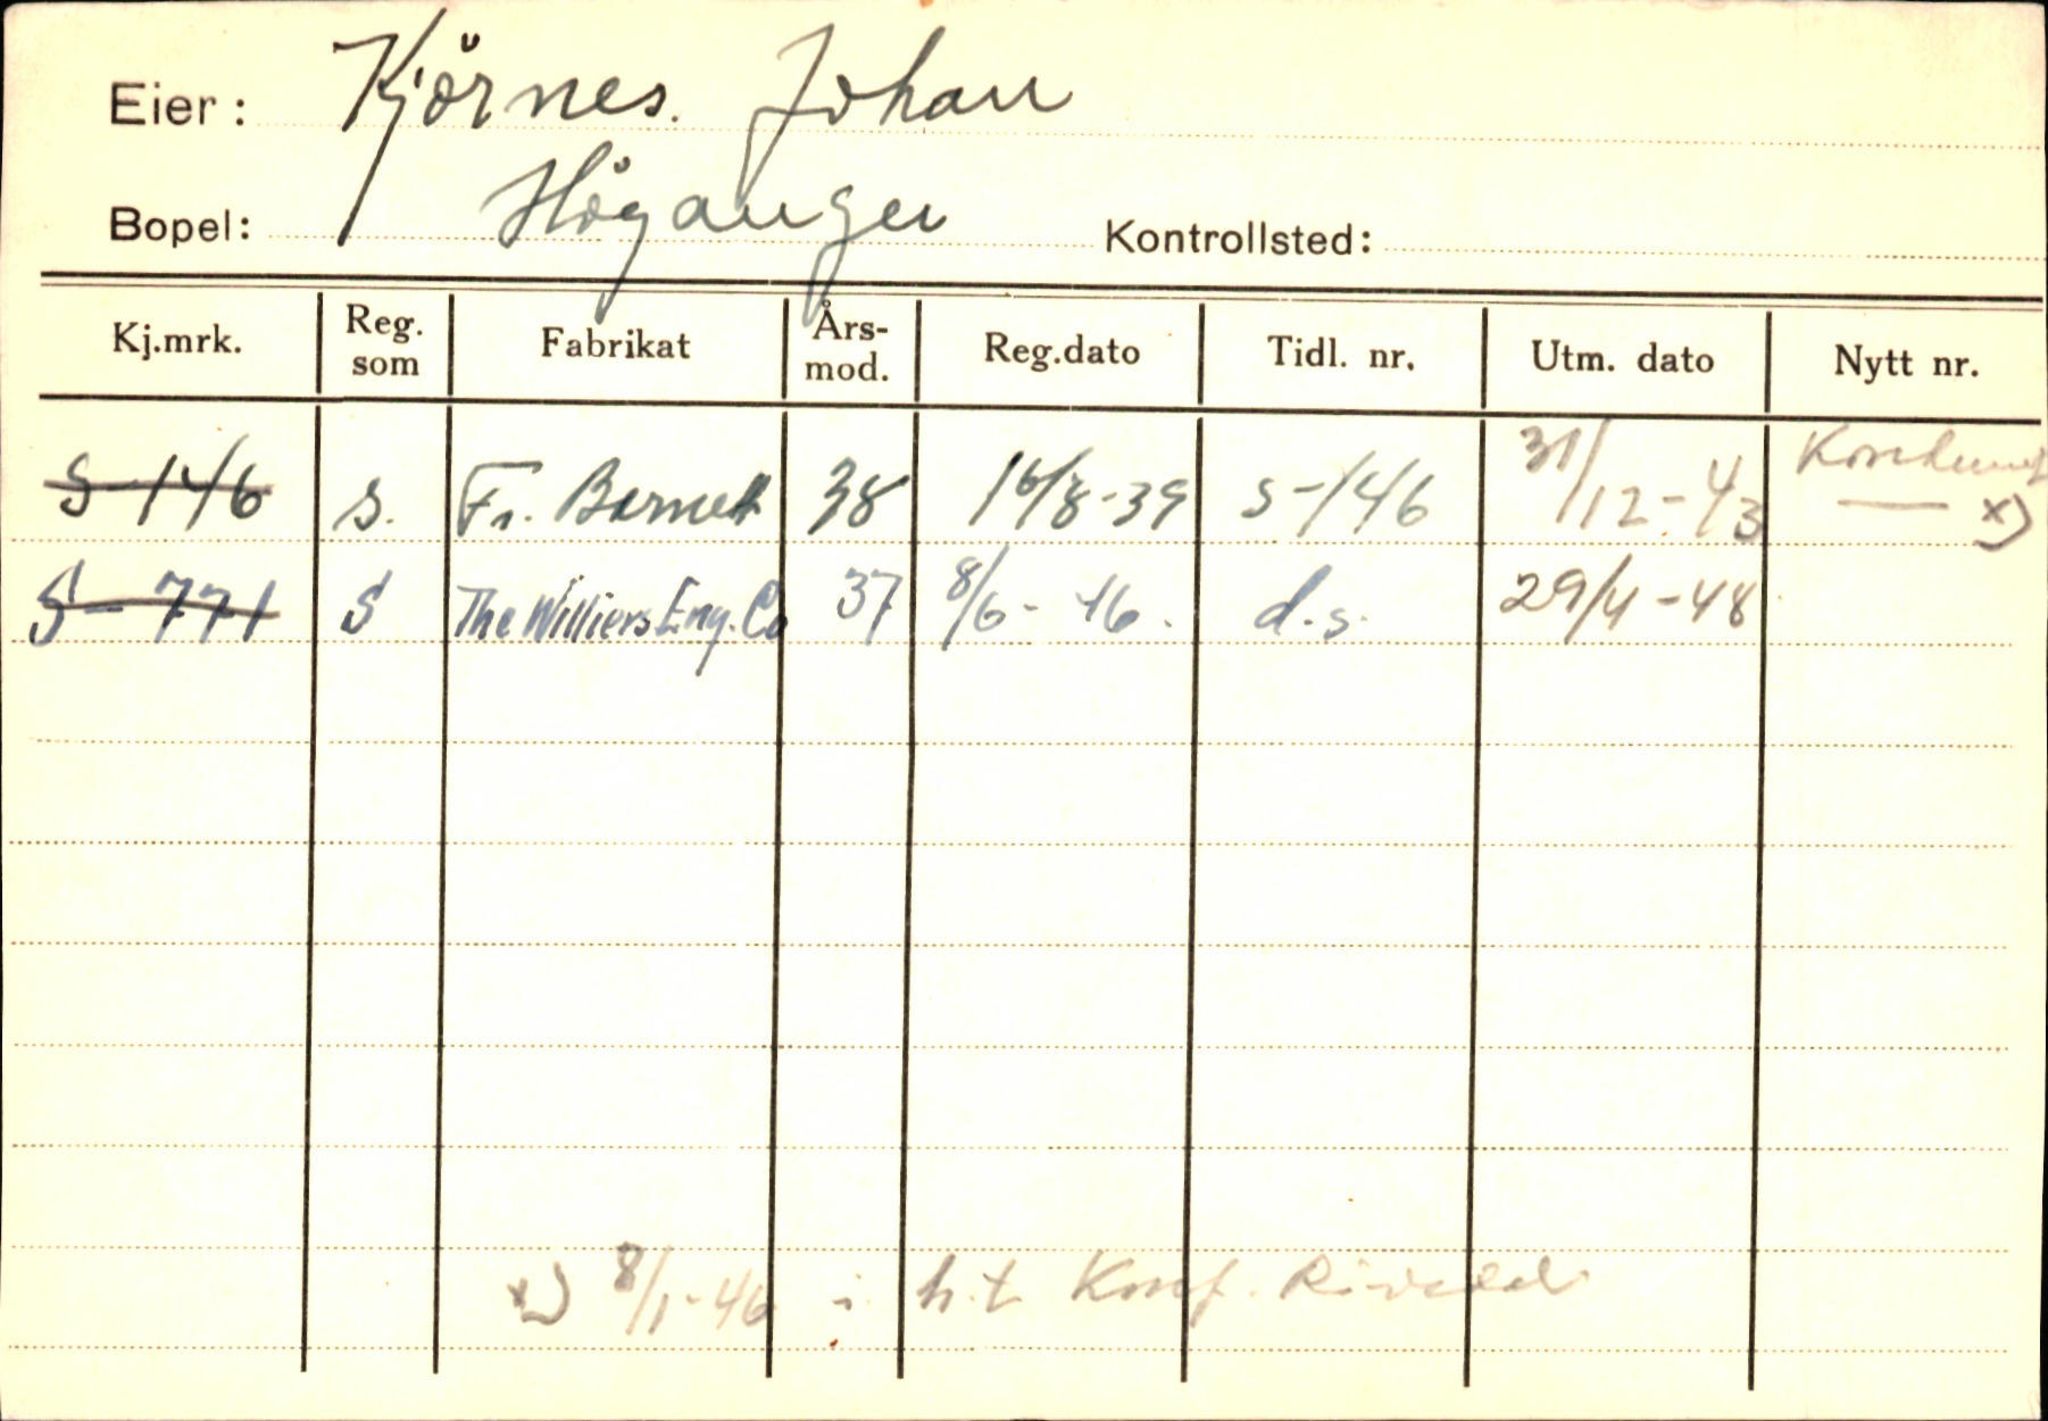 Eier: Kjörnes. Johan
Bopel: Höyanger Kontrollsted:
Kj.mrk. Reg. som Fabrikat Års-mod. Reg.dato Tidl. nr. Utm. dato Nytt nr.
S-146 s. Fr. Barnett 38 16/8-39 s-146 31/12-43 x)
S-771 S The Williers Eng. Co 37 8/6-46. d.s. 29/4-48
x) 8/1-46 i h.t.